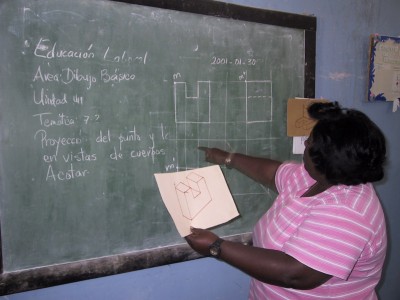 Educación
2001-01-30
Area: Dibujo Básico
Unidad
Temática 7.0
Proyección del punto y
en vistas de cuerpos
Acotar
m
m'
m''